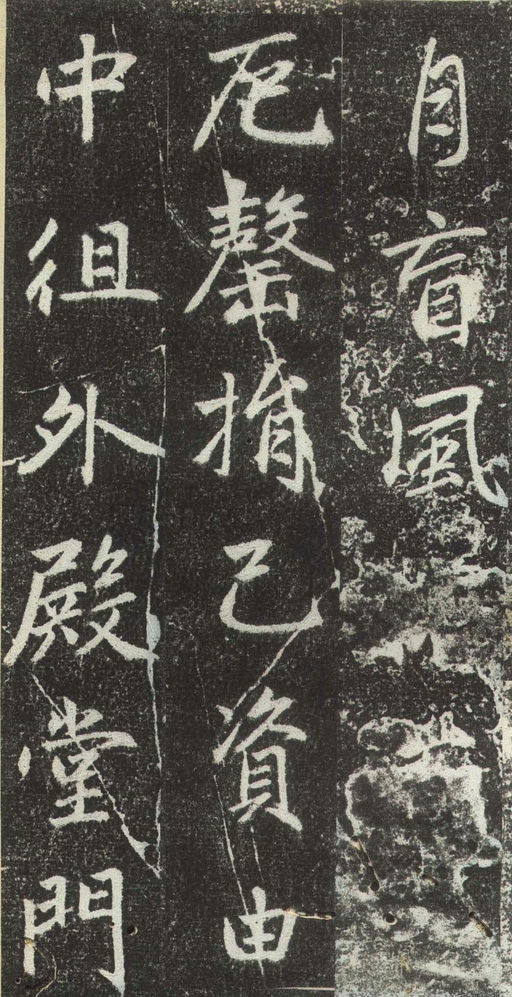 自盲風
厄罄捐己資由
中徂外殿堂門